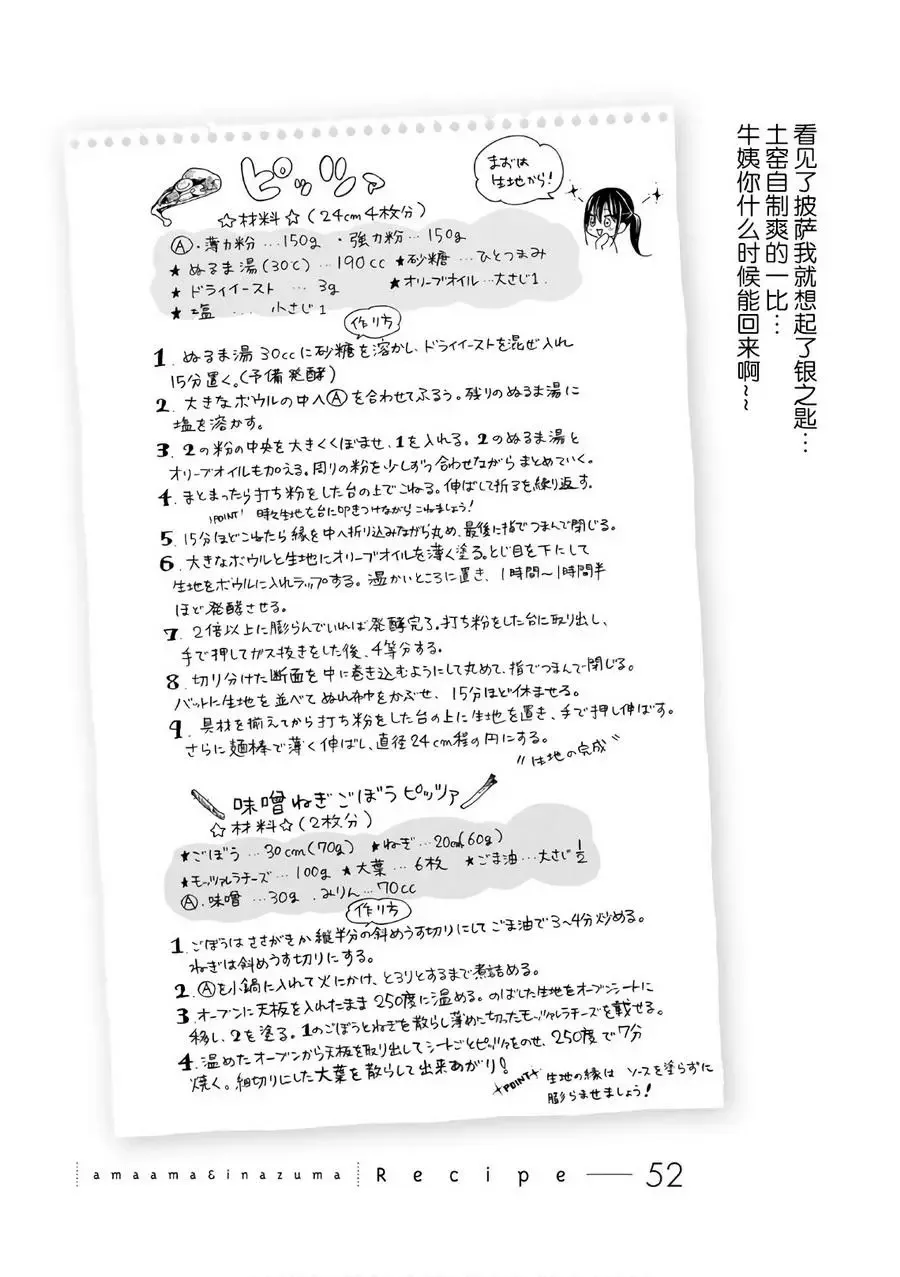 看见了披萨我就想起了银之匙…
土窑自制爽的一比…
牛姨你什么时候能回来啊~~
ピッツァ
まずは
生地から!
☆材料☆(24cm4枚分)
Ⓐ・薄力粉…150g ・強力粉…150g
★ぬるま湯(30℃)…190cc ★砂糖…ひとつまみ
★ドライイースト…3g ★オリーブオイル…大さじ1.
★塩 … 小さじ1
作り方
1.ぬるま湯30ccに砂糖を溶かし、ドライイーストを混ぜ入れ
15分置く。(予備発酵)
2.大きなボウルの中へⒶを合わせてふるう。残りのぬるま湯に
塩を溶かす。
3.2の粉の中央を大きくくぼませ、1を入れる。2のぬるま湯と
オリーブオイルも加える。周りの粉を少しずつ合わせながらまとめていく。
4.まとまったら打ち粉をした台の上でこねる。伸ばして折るを繰り返す。
!POINT! 時々生地を台に叩きつけながらこねましょう!
5.15分ほどこねたら縁を中へ折り込みながら丸め、最後に指でつまんで閉じる。
6.大きなボウルと生地にオリーブオイルを薄く塗る。とじ目を下にして
生地をボウルに入れラップする。温かいところに置き、1時間〜1時間半
ほど発酵させる。
7.2倍以上に膨らんでいれば発酵完了。打ち粉をした台に取り出し、
手で押してガス抜きをした後、4等分する。
8.切り分けた断面を中に巻き込むようにして丸めて、指でつまんで閉じる。
バットに生地を並べてぬれ布巾をかぶせ、15分ほど休ませる。
9.具材を揃えてから打ち粉をした台の上に生地を置き、手で押し伸ばす。
さらに麺棒で薄く伸ばし、直径24cm程の円にする。
〃生地の完成〃
味噌ねぎごぼうピッツァ
☆材料☆(2枚分)
★ごぼう…30cm(70g) ★ねぎ…20cm(60g)
★モッツァレラチーズ…100g ★大葉…6枚 ★ごま油…大さじ1/2
Ⓐ.味噌…30g .みりん…70cc
作り方
1.ごぼうはささがきか縦半分の斜めうす切りにしてごま油で3〜4分炒める。
ねぎは斜めうす切りにする。
2.Ⓐを小鍋に入れて火にかけ、とろりとするまで煮詰める。
3.オーブンに天板を入れたまま250度に温める。のばした生地をオーブンシートに
移し、2を塗る。1のごぼうとねぎを散らし薄めに切ったモッツァレラチーズを載せる。
4.温めたオーブンから天板を取り出してシートごとピッツァをのせ、250度で7分
焼く。細切りにした大葉を散らして出来あがり!
POINT 生地の縁は ソースを塗らずに
膨らませましょう!
amaama&inazuma Recipe 52